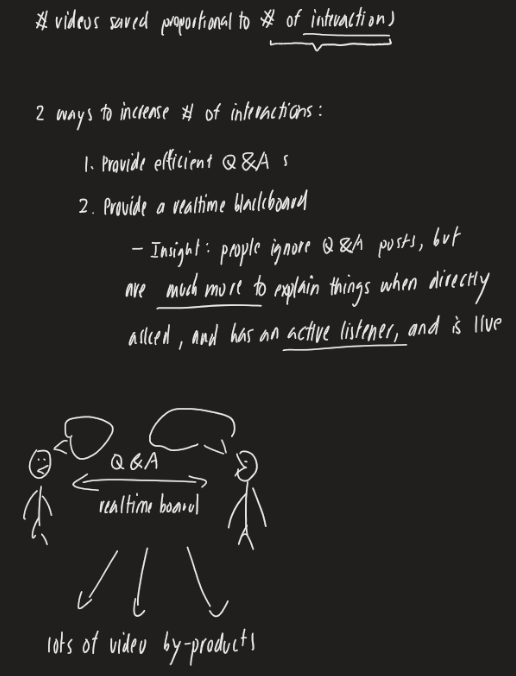 # videos saved proportional to # of interactions
2 ways to increase # of interactions:
1. Provide efficient Q&A s
2. Provide a realtime blackboard
- Insight: people ignore Q&A posts, but
are much more to explain things when directly
asked, and has an active listener, and is live
Q&A
realtime board
lots of video by-products